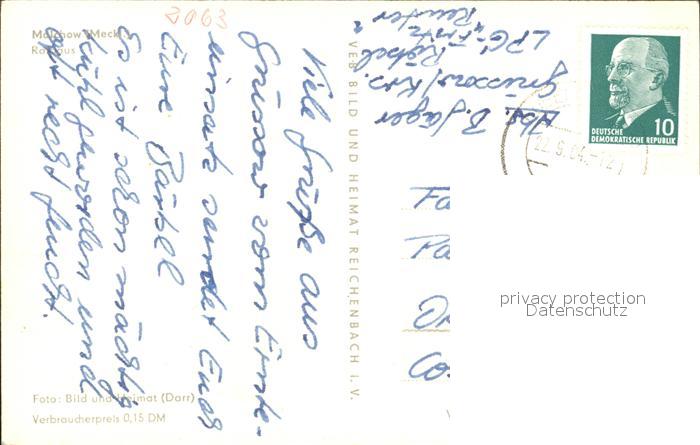 Malchow (Meckl.)
Rathaus
3063
Viele Grüße aus
Grüssow vom Ernte-
einsatz sendet Euch
Eure Bärbel
Es ist schon mächtig
kühl geworden und
oft recht feucht.
Foto: Bild und Heimat (Darr)
Verbraucherpreis 0,15 DM
VEB BILD UND HEIMAT REICHENBACH I. V.
Abs. B. Jäger
Grüssow/Krs.
Röbel
LPG "Fritz
Reuter"
DEUTSCHE
DEMOKRATISCHE REPUBLIK
10
22.9.64.-12
Fa
privacy protection
Datenschutz